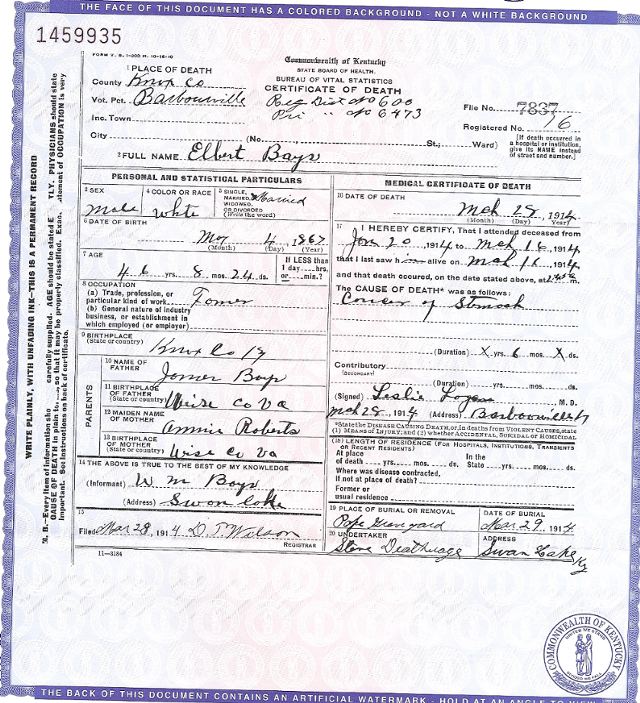 THE FACE OF THIS DOCUMENT HAS A COLORED BACKGROUND - NOT A WHITE BACKGROUND
1459935
Commonwealth of Kentucky
STATE BOARD OF HEALTH.
BUREAU OF VITAL STATISTICS
CERTIFICATE OF DEATH
1 PLACE OF DEATH
County Knox Co
Vot. Pct. Barbourville
Reg Dist No 600
Pri " No 6473
File No. 7837
Inc. Town
Registered No. 16
City (No. St.; Ward)
(If death occurred in a hospital or institution, give its NAME instead of street and number.)
2 FULL NAME Elbert Bays
PERSONAL AND STATISTICAL PARTICULARS
3 SEX
Male
4 COLOR OR RACE
White
5 SINGLE, MARRIED, WIDOWED, OR DIVORCED (Write the word)
Married
6 DATE OF BIRTH
4, 1867
(Month) (Day) (Year)
7 AGE
46 yrs. 8 mos. 24 ds.
If LESS than 1 day....hrs. or....min.?
8 OCCUPATION
(a) Trade, profession, or particular kind of work
(b) General nature of industry business, or establishment in which employed (or employer)
9 BIRTHPLACE
(State or country) Knox Co Ky
PARENTS
10 NAME OF FATHER
Bays
11 BIRTHPLACE OF FATHER
(State or country) Wise Co Va
12 MAIDEN NAME OF MOTHER
Annie Roberts
13 BIRTHPLACE OF MOTHER
(State or country) Wise Co Va
14 THE ABOVE IS TRUE TO THE BEST OF MY KNOWLEDGE
(Informant) W m Bays
(Address) Swan Lake
15
Filed Mar 28, 1914 D. T. Wilson
REGISTRAR
11-3184
MEDICAL CERTIFICATE OF DEATH
16 DATE OF DEATH
Mch 28, 1914
(Month) (Day) (Year)
17 I HEREBY CERTIFY, That I attended deceased from
Jan 20, 1914 to Mch 16, 1914
that I last saw him alive on Mch 16, 1914
and that death occurred, on the date stated above, at m.
The CAUSE OF DEATH* was as follows:
Cancer of Stomach
(Duration) X yrs. 6 mos. X ds.
Contributory
(SECONDARY)
(Duration) yrs. mos. ds.
(Signed) Leslie Logan M. D.
Mch 28, 1914 (Address) Barbourville Ky
*State the DISEASE CAUSING DEATH, or, in deaths from VIOLENT CAUSES, state (1) MEANS OF INJURY; and (2) whether ACCIDENTAL, SUICIDAL or HOMICIDAL.
18 LENGTH OF RESIDENCE (FOR HOSPITALS, INSTITUTIONS, TRANSIENTS OR RECENT RESIDENTS)
At place of death yrs. mos. ds. In the State yrs. mos. ds.
Where was disease contracted, if not at place of death?
Former or usual residence
19 PLACE OF BURIAL OR REMOVAL
Pope Graveyard
DATE OF BURIAL
Mar. 29, 1914
20 UNDERTAKER
Steve Deathrage
ADDRESS
Swan Lake Ky
WRITE PLAINLY, WITH UNFADING INK—THIS IS A PERMANENT RECORD
COMMONWEALTH OF KENTUCKY
THE BACK OF THIS DOCUMENT CONTAINS AN ARTIFICIAL WATERMARK - HOLD AT AN ANGLE TO VIEW